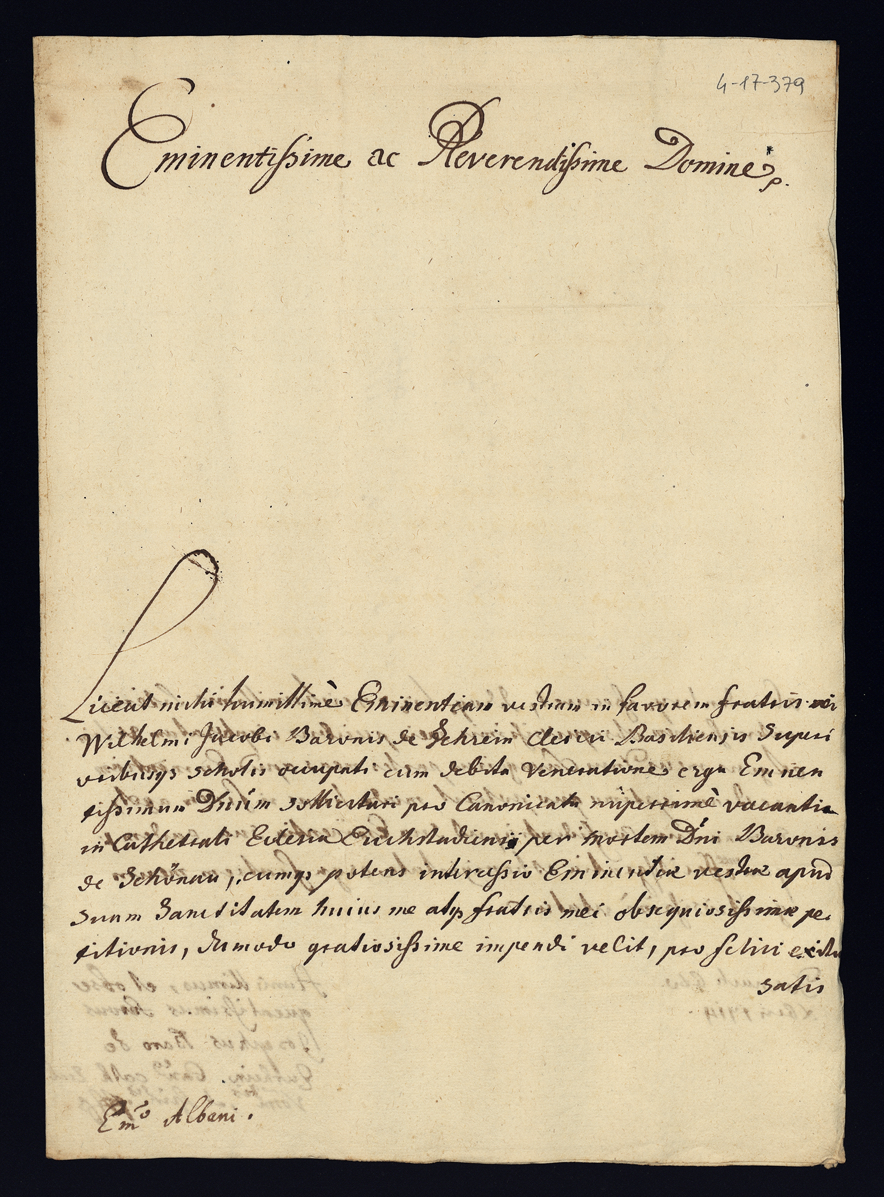 4-17-379
Eminentissime ac Reverendissime Domine
Liceat mihi humillimè Eminentiam vestram in favorem fratris mei
Wilhelmi Jacobi Baronis de Clerici Basiliensis Superi
oribusqz scholis occupati cum debita Veneratione erga Eminen
tissimum Dnúm sollicitari pro Canonicatu núperrimè vacante
in Cathedrali Ecclesia Eichstadiensi per mortem Dńi Baronis
de Schönau, cumqz potens intercessio Eminentiæ vestræ apud
Suam Sanctitatem huius me atqz fratris mei obsequiosissimæ pe
titionis, dummodo gratiosissime impendi velit, pro felici exitu
satis
Em͞o Albani.